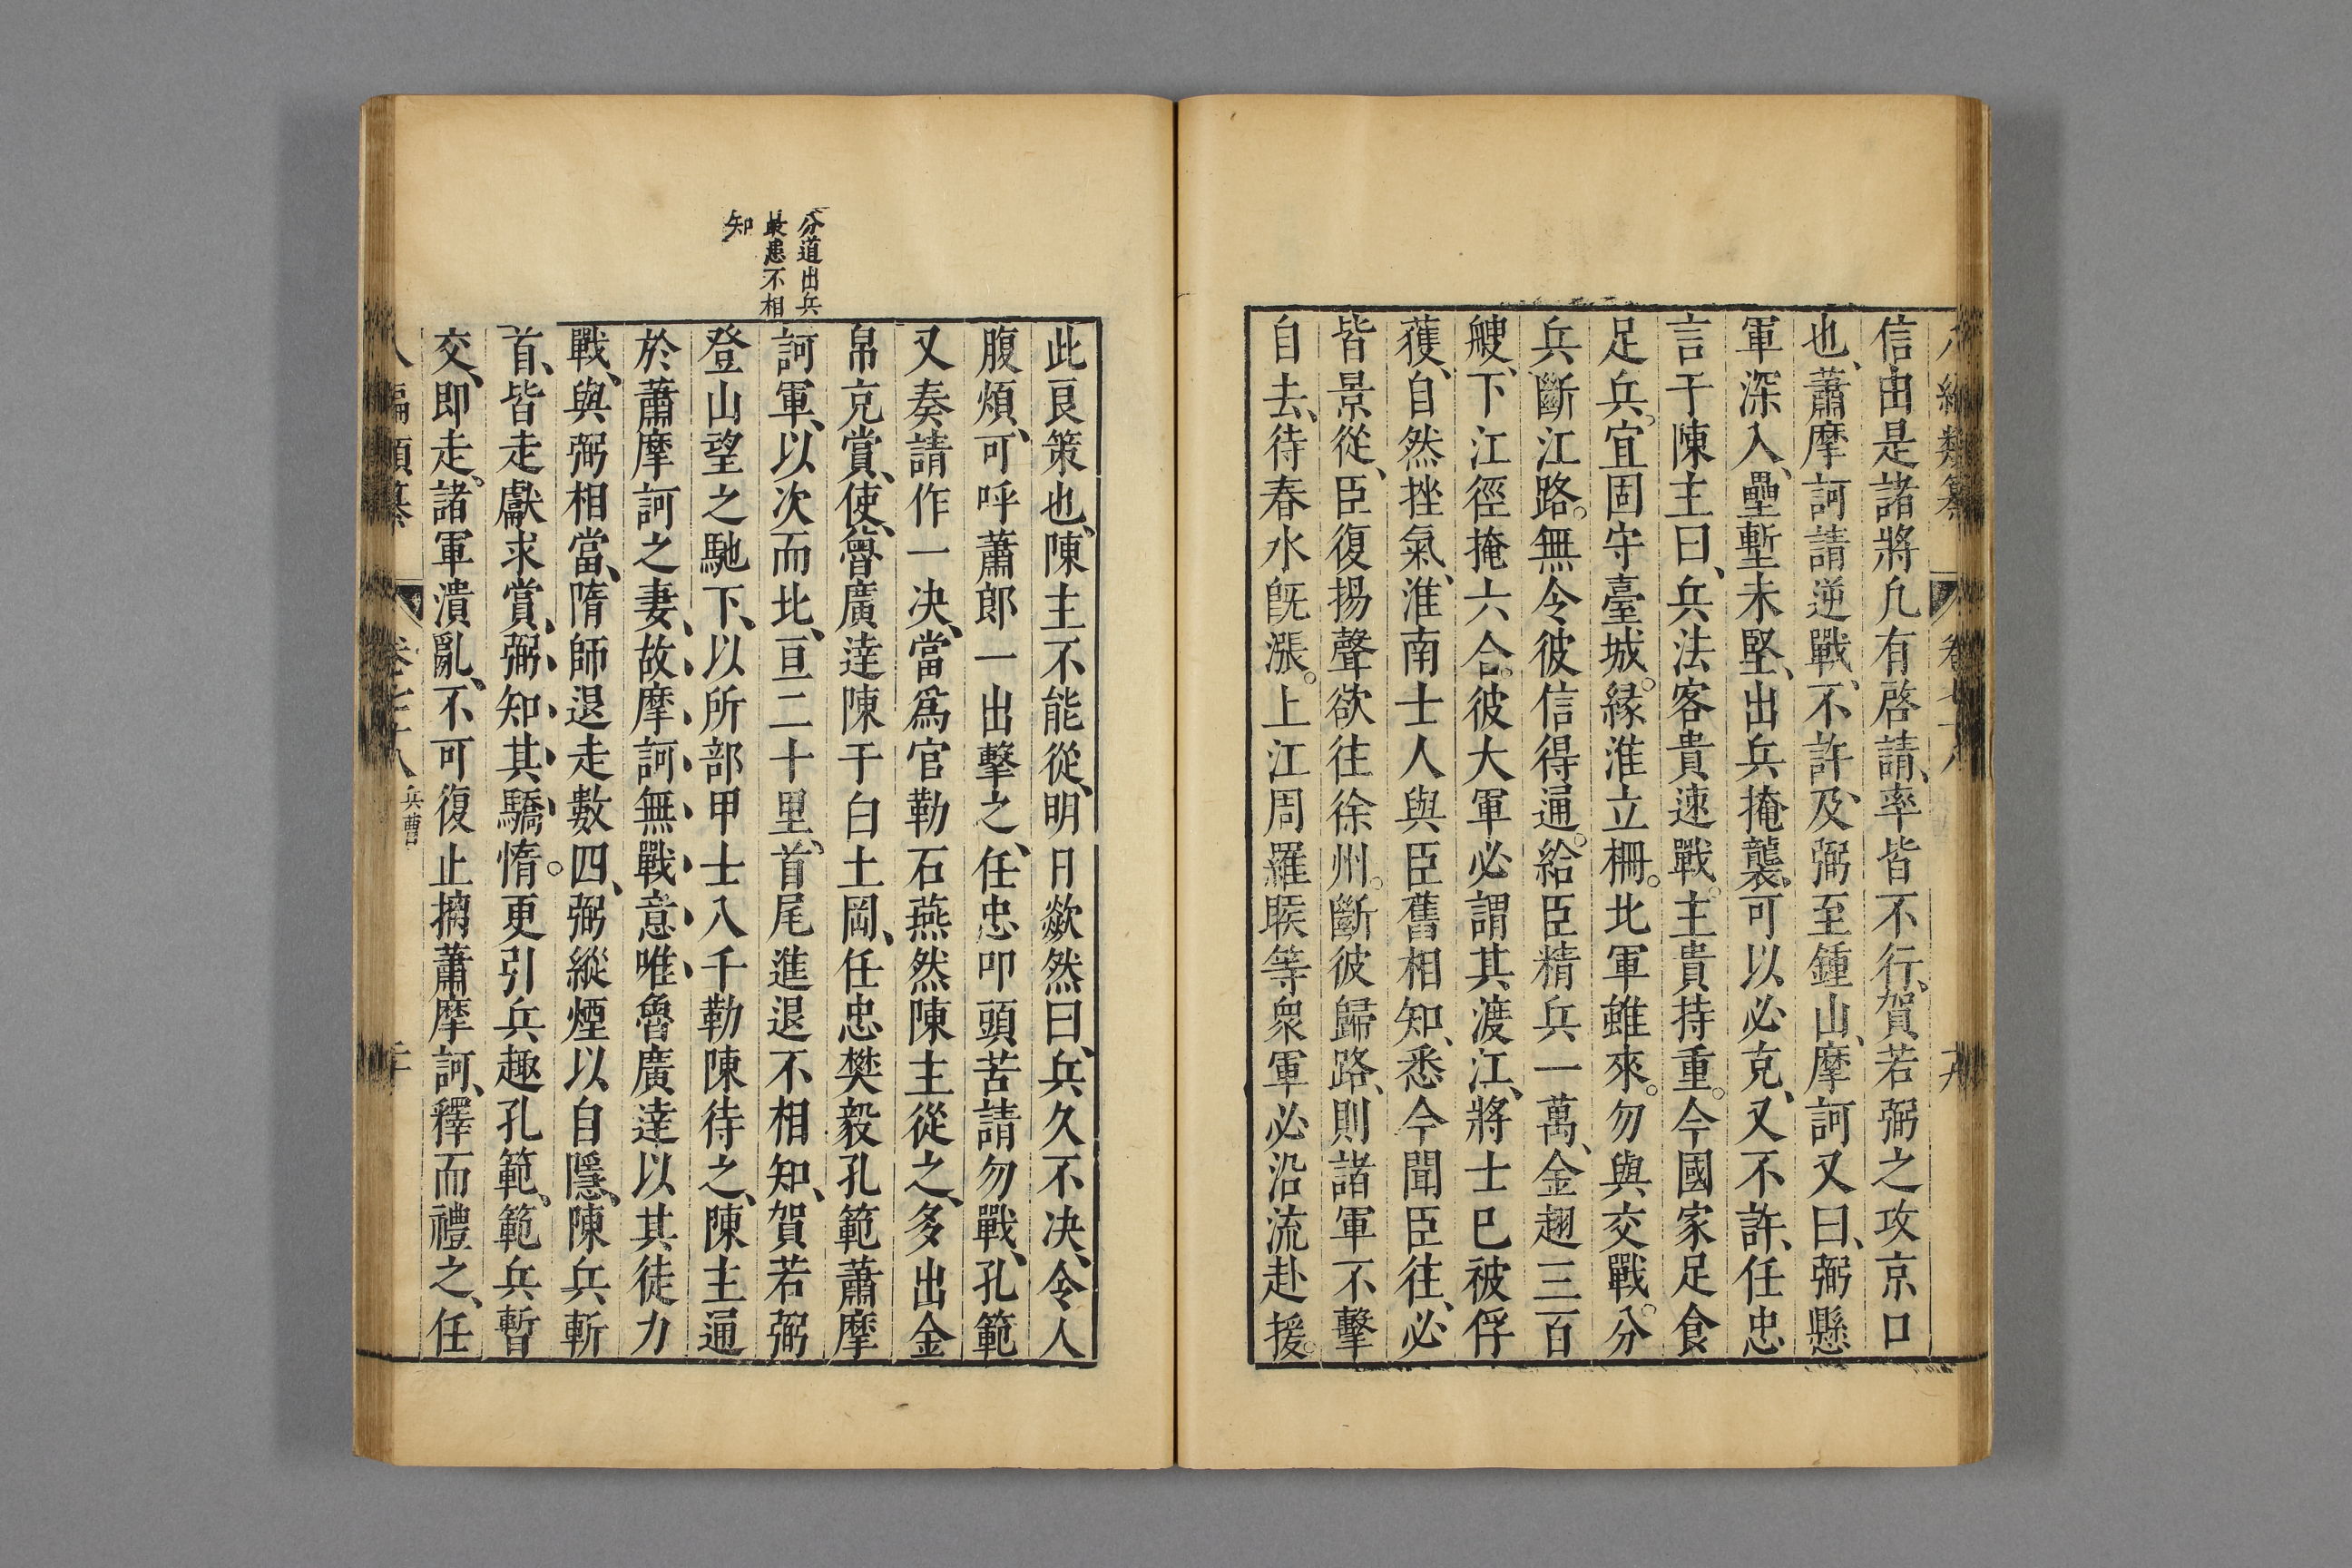 信由是諸將凢有啓請、率皆不行、賀若弼之攻京口
也、蕭摩訶請逆戰、不許、及弼至鍾山、摩訶又曰、弼懸
軍深入、壘塹未堅、出兵掩襲、可以必克、又不許、任忠
言于陳主曰、兵法客貴速戰。主貴持重。今國家足食
足兵。宜固守臺城。縁淮立柵。北軍雖來。勿與交戰。分
兵斷江路。無令彼信得通。給臣精兵一萬、金翅三百
艘、下江徑掩六合。彼大軍必謂其渡江、將士已被俘
獲、自然挫氣、淮南士人與臣舊相知、悉今聞臣往、必
皆景從、臣復揚聲欲往徐州。斷彼歸路、則諸軍不擊
自去、待春水旣漲。上江周羅睺等衆軍必沿流赴援。
分道出兵
最患不相
知
此良策也、陳主不能從、明日歘然曰、兵久不决、令人
腹煩、可呼蕭郎一出擊之、任忠叩頭苦請勿戰、孔範
又奏請作一决、當爲官勒石燕然陳主從之、多出金
帛克賞、使魯廣達陳于白土岡、任忠樊毅孔範蕭摩
訶軍、以次而北、亘二十里、首尾進退不相知、賀若弼
登山望之馳下、以所部甲士入千勒陳待之、陳主通
於蕭摩訶之妻、故摩訶無戰意唯魯廣達以其徒力
戰、與弼相當、隋師退走數四、弼縱煙以自隱、陳兵斬
首、皆走獻求賞、弼知其驕惰。更引兵趣孔範、範兵暫
交、即走、諸軍潰亂、不可復止擒蕭摩訶、釋而禮之、任
兵曹